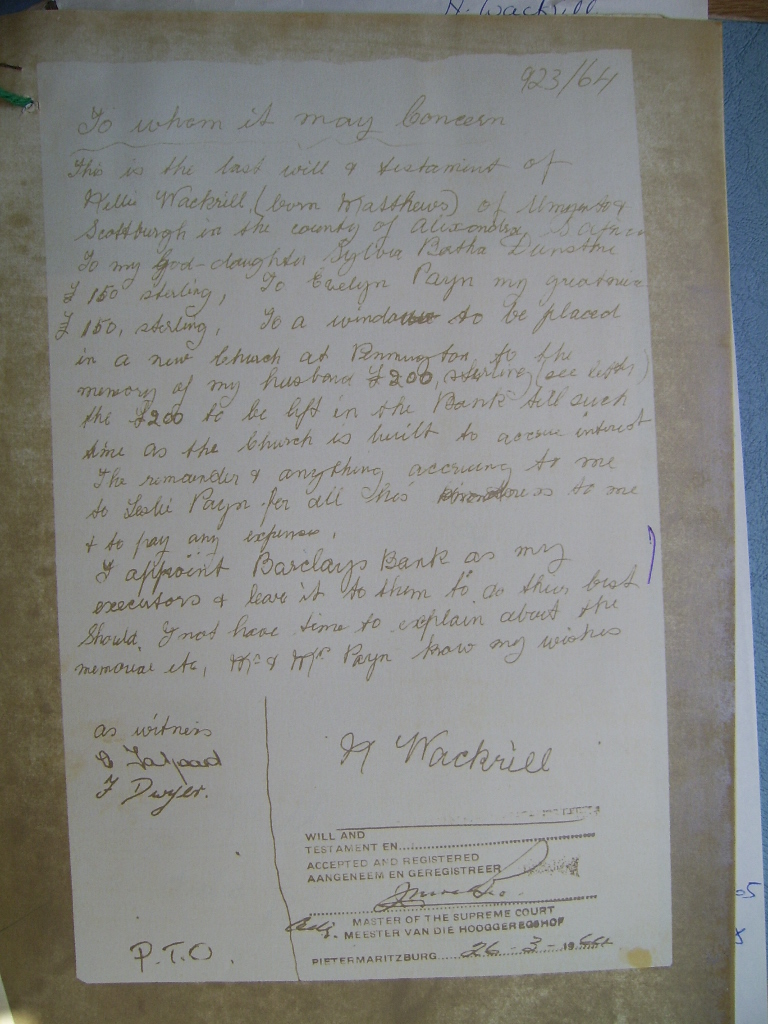 N. Wackrill
923/64
To whom it may Concern
This is the last will & testament of
Nellie Wackrill (born Matthews) of Umzinto &
Scottburgh in the county of Alexandra, S Africa
To my God-daughter Sylvia Bertha Dunstone
£150 sterling, To Evelyn Payn my great niece
£150, sterling, To a window to be placed
in a new Church at Pennington, to the
memory of my husband £200, sterling (see letter)
the £200 to be left in the Bank till such
time as the Church is built to accrue interest
The remainder & anything accruing to me
to Leslie Payn for all his kindness to me
& to pay any expenses.
I appoint Barclays Bank as my
executors & leave it to them to do their best
Should I not have time to explain about the
memorial etc, Mr & Mrs Payn know my wishes
as witness
F Dwyer.
N Wackrill
WILL AND
TESTAMENT EN
ACCEPTED AND REGISTERED
AANGENEEM EN GEREGISTREER
MASTER OF THE SUPREME COURT
Adj. MEESTER VAN DIE HOOGGEREGSHOF
PIETERMARITZBURG 26-3-1964
P.T.O.